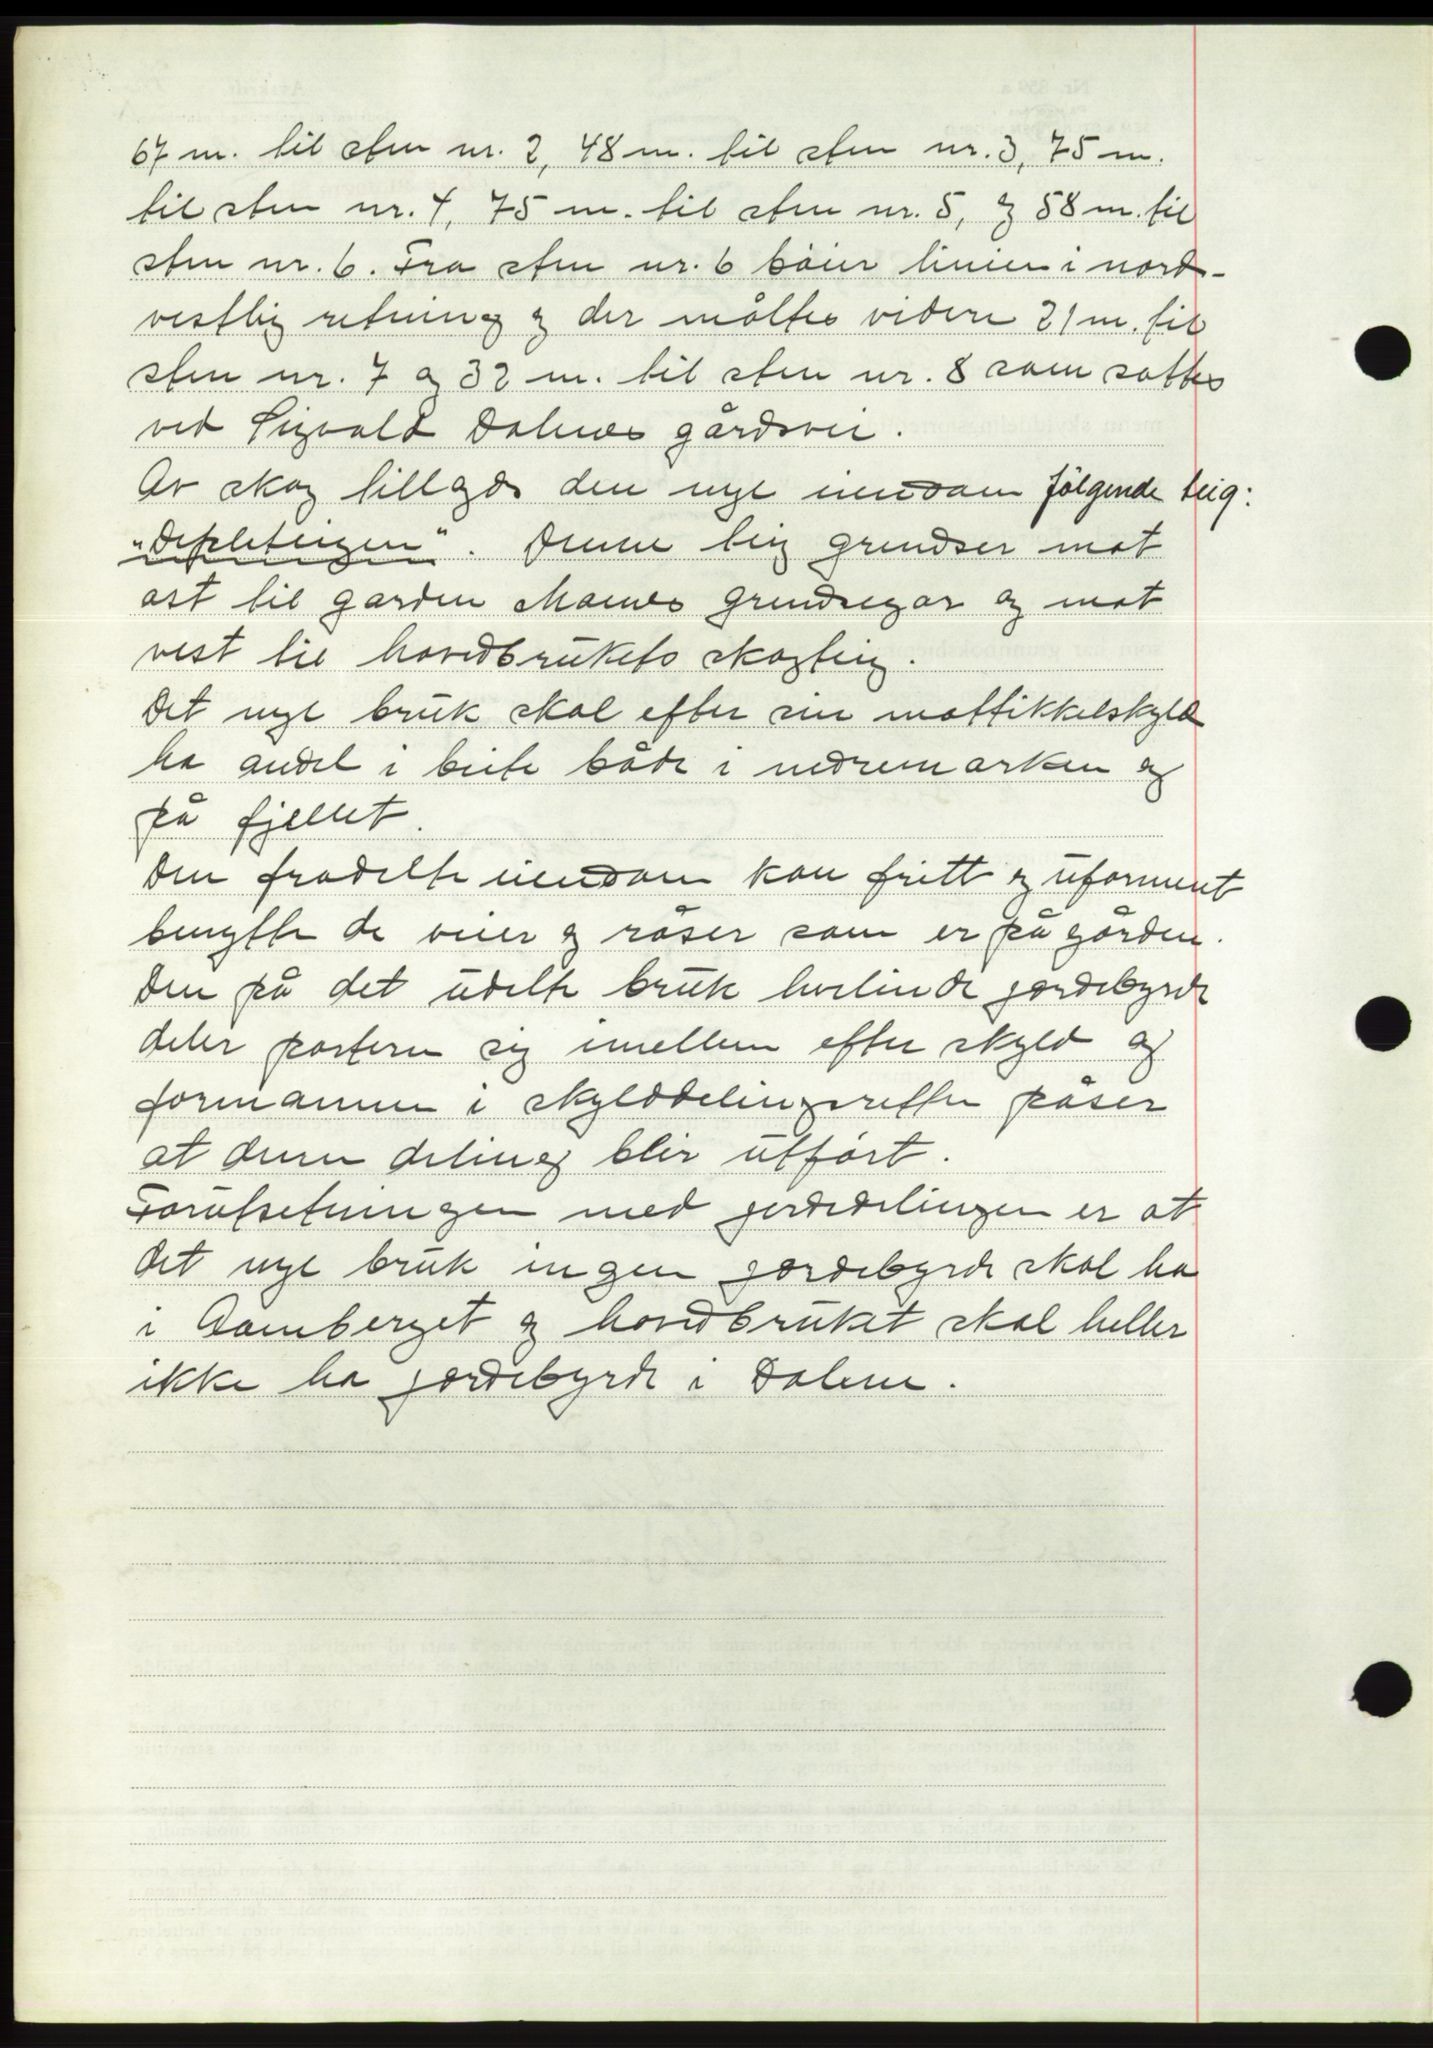 67 m. til sten nr. 2, 48 m. til sten nr. 3, 75 m.
til sten nr. 4, 75 m. til sten nr. 5, og 58 m. til
sten nr. 6. Fra sten nr. 6 bøier linien i nord-
vestlig retning og der måltes videre 21 m. til
sten nr. 7 og 32 m. til sten nr. 8 som sattes
ved Sigvald Dalenes gårdsvei.
Av skog tillegges den nye eiendom følgende teig:
"Depleteigen". Denne teig grendser mot
øst til garden Moenes grendsegar og mot
vest til hovedbrukets skogteig.
Det nye bruk skal efter sin mattikkelskyld
ha andel i beite både i nedremarken og
på fjellet.
Den fradelte eiendom kan fritt og uforment
benytte de veier og råser som er på gården.
Den på det udelte bruk hvilende gjerdebyrde
deler partene sig imellem efter skyld og
formannen i skylddelingsretten påser
at denne deling blir utført.
Forutsetningen med gjerdedelingen er at
det nye bruk ingen gjerdebyrde skal ha
i Aamberget og hovedbruket skal heller
ikke ha gjerdebyrde i Dalene.